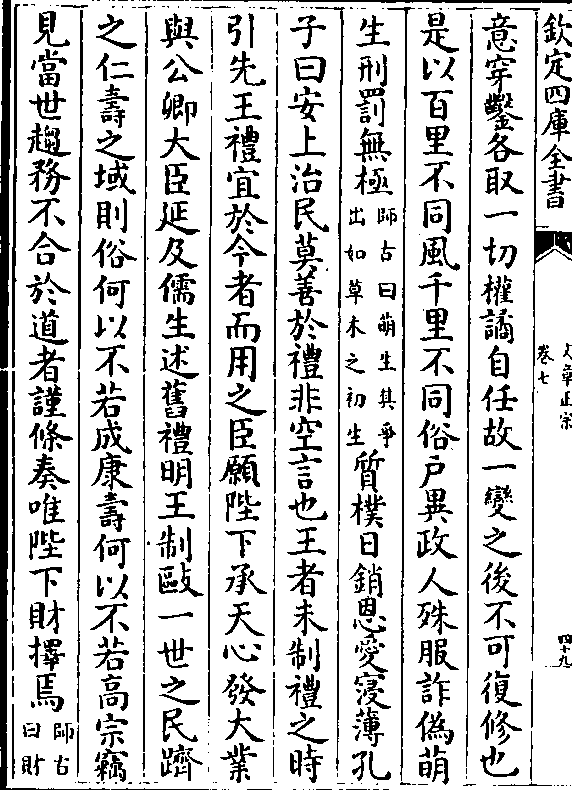 欽定四庫全書
文章正宗
卷七
四十九
意穿鑿各取一切權譎自任故一變之後不可復修也
是以百里不同風千里不同俗户異政人殊服詐偽萌
生刑罰無極師古曰萌生其爭出如草木之初生質樸日銷恩愛寖薄孔
子曰安上治民莫善於禮非空言也王者未制禮之時
引先王禮宜於今者而用之臣願陛下承天心發大業
與公卿大臣延及儒生述舊禮明王制敺一世之民躋
之仁壽之域則俗何以不若成康壽何以不若高宗竊
見當世趨務不合於道者謹條奏唯陛下財擇焉師古曰財